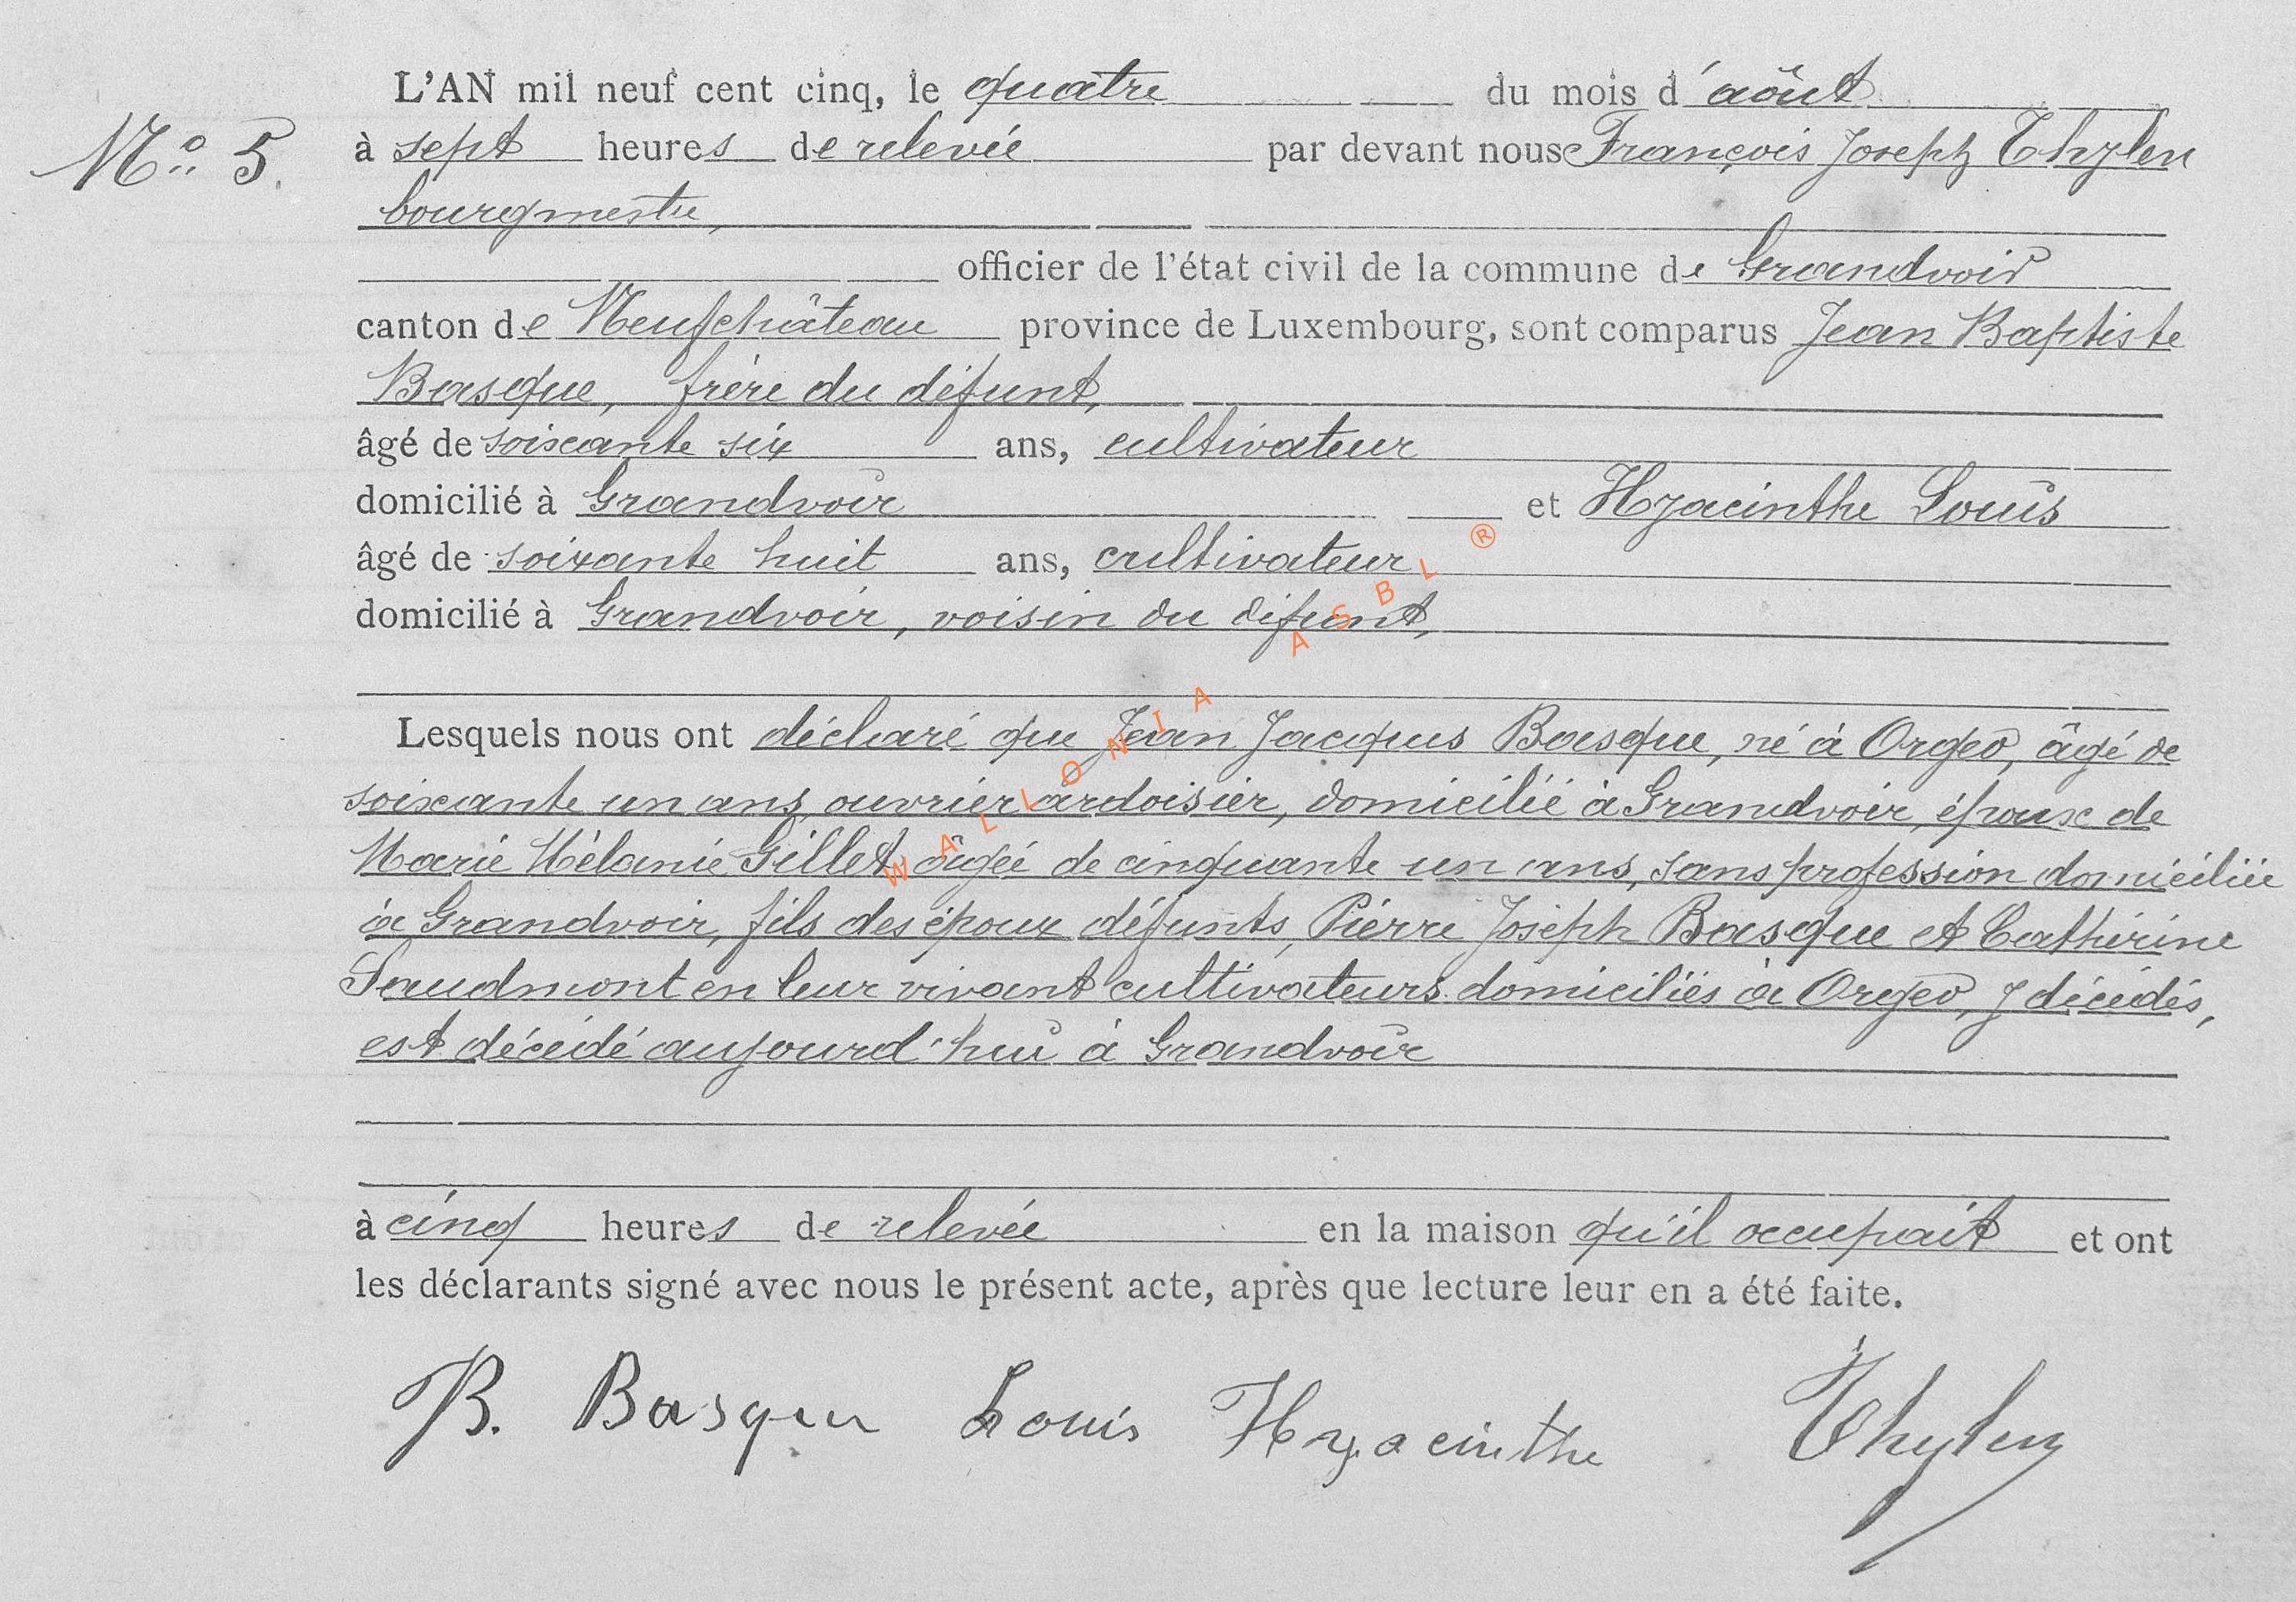 L'AN mil neuf cent cinq, le quatre du mois d'août
N° 5. à sept heures de relevée par devant nous François Joseph Thylen
bourgmestre,
officier de l'état civil de la commune de Grandvoir
canton de Neufchâteau province de Luxembourg, sont comparus Jean Baptiste
Basque, frère du défunt,
âgé de soixante six ans, cultivateur
domicilié à Grandvoir et Hyacinthe Louis
âgé de soixante huit ans, cultivateur
domicilié à Grandvoir, voisin du défunt,
Lesquels nous ont déclaré que Jean Jacques Basque, né à Orgeo, âgé de
soixante un ans, ouvrier ardoisier, domicilié à Grandvoir, époux de
Marie Mélanie Gillet, âgée de cinquante un ans, sans profession domiciliée
à Grandvoir, fils des époux défunts, Pierre Joseph Basque et Catherine
en leur vivant cultivateurs domiciliés à Orgeo, y décédés,
est décédé aujourd'hui à Grandvoir
à cinq heures de relevée en la maison qu'il occupait et ont
les déclarants signé avec nous le présent acte, après que lecture leur en a été faite.
B. Basque Louis Hyacinthe Thylen
WALLONIA ASBL ®